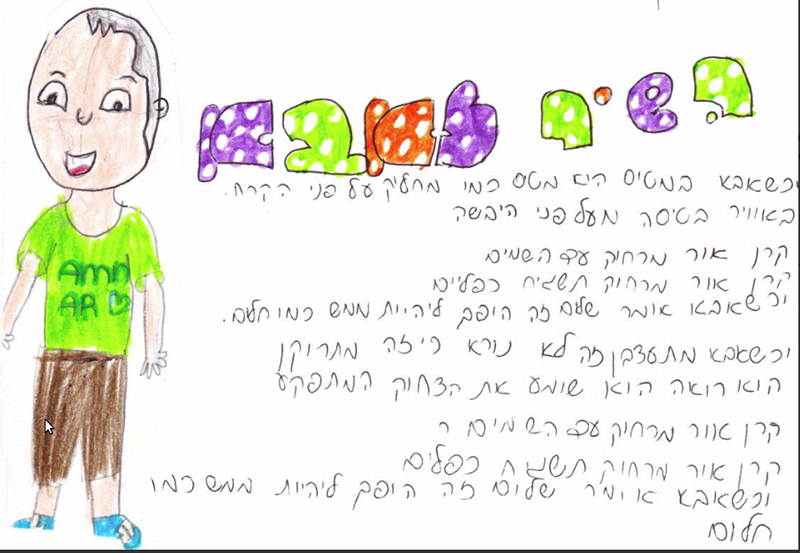 השיר לאבא
וכשאבא במטיס הוא מטס כמו מחליק על פני הקרח.
באוויר בטיסה מעל פני היבשה
קרן אור מרחוק עד השמים
קרן אור מרחוק תשגיח כפליים
וכשאבא אומר שלום זה הופך ליהיות ממש כמו חלום.
וכשאבא מתעצבן זה לא נורא כי זה מתרוקן
הוא רואה הוא שומע את הצחוק המתפקע
קרן אור מרחוק עד השמים
קרן אור מרחוק תשגיח כפלים
וכשאבא אומר שלום זה הופך ליהיות ממש כמו
חלום
AR